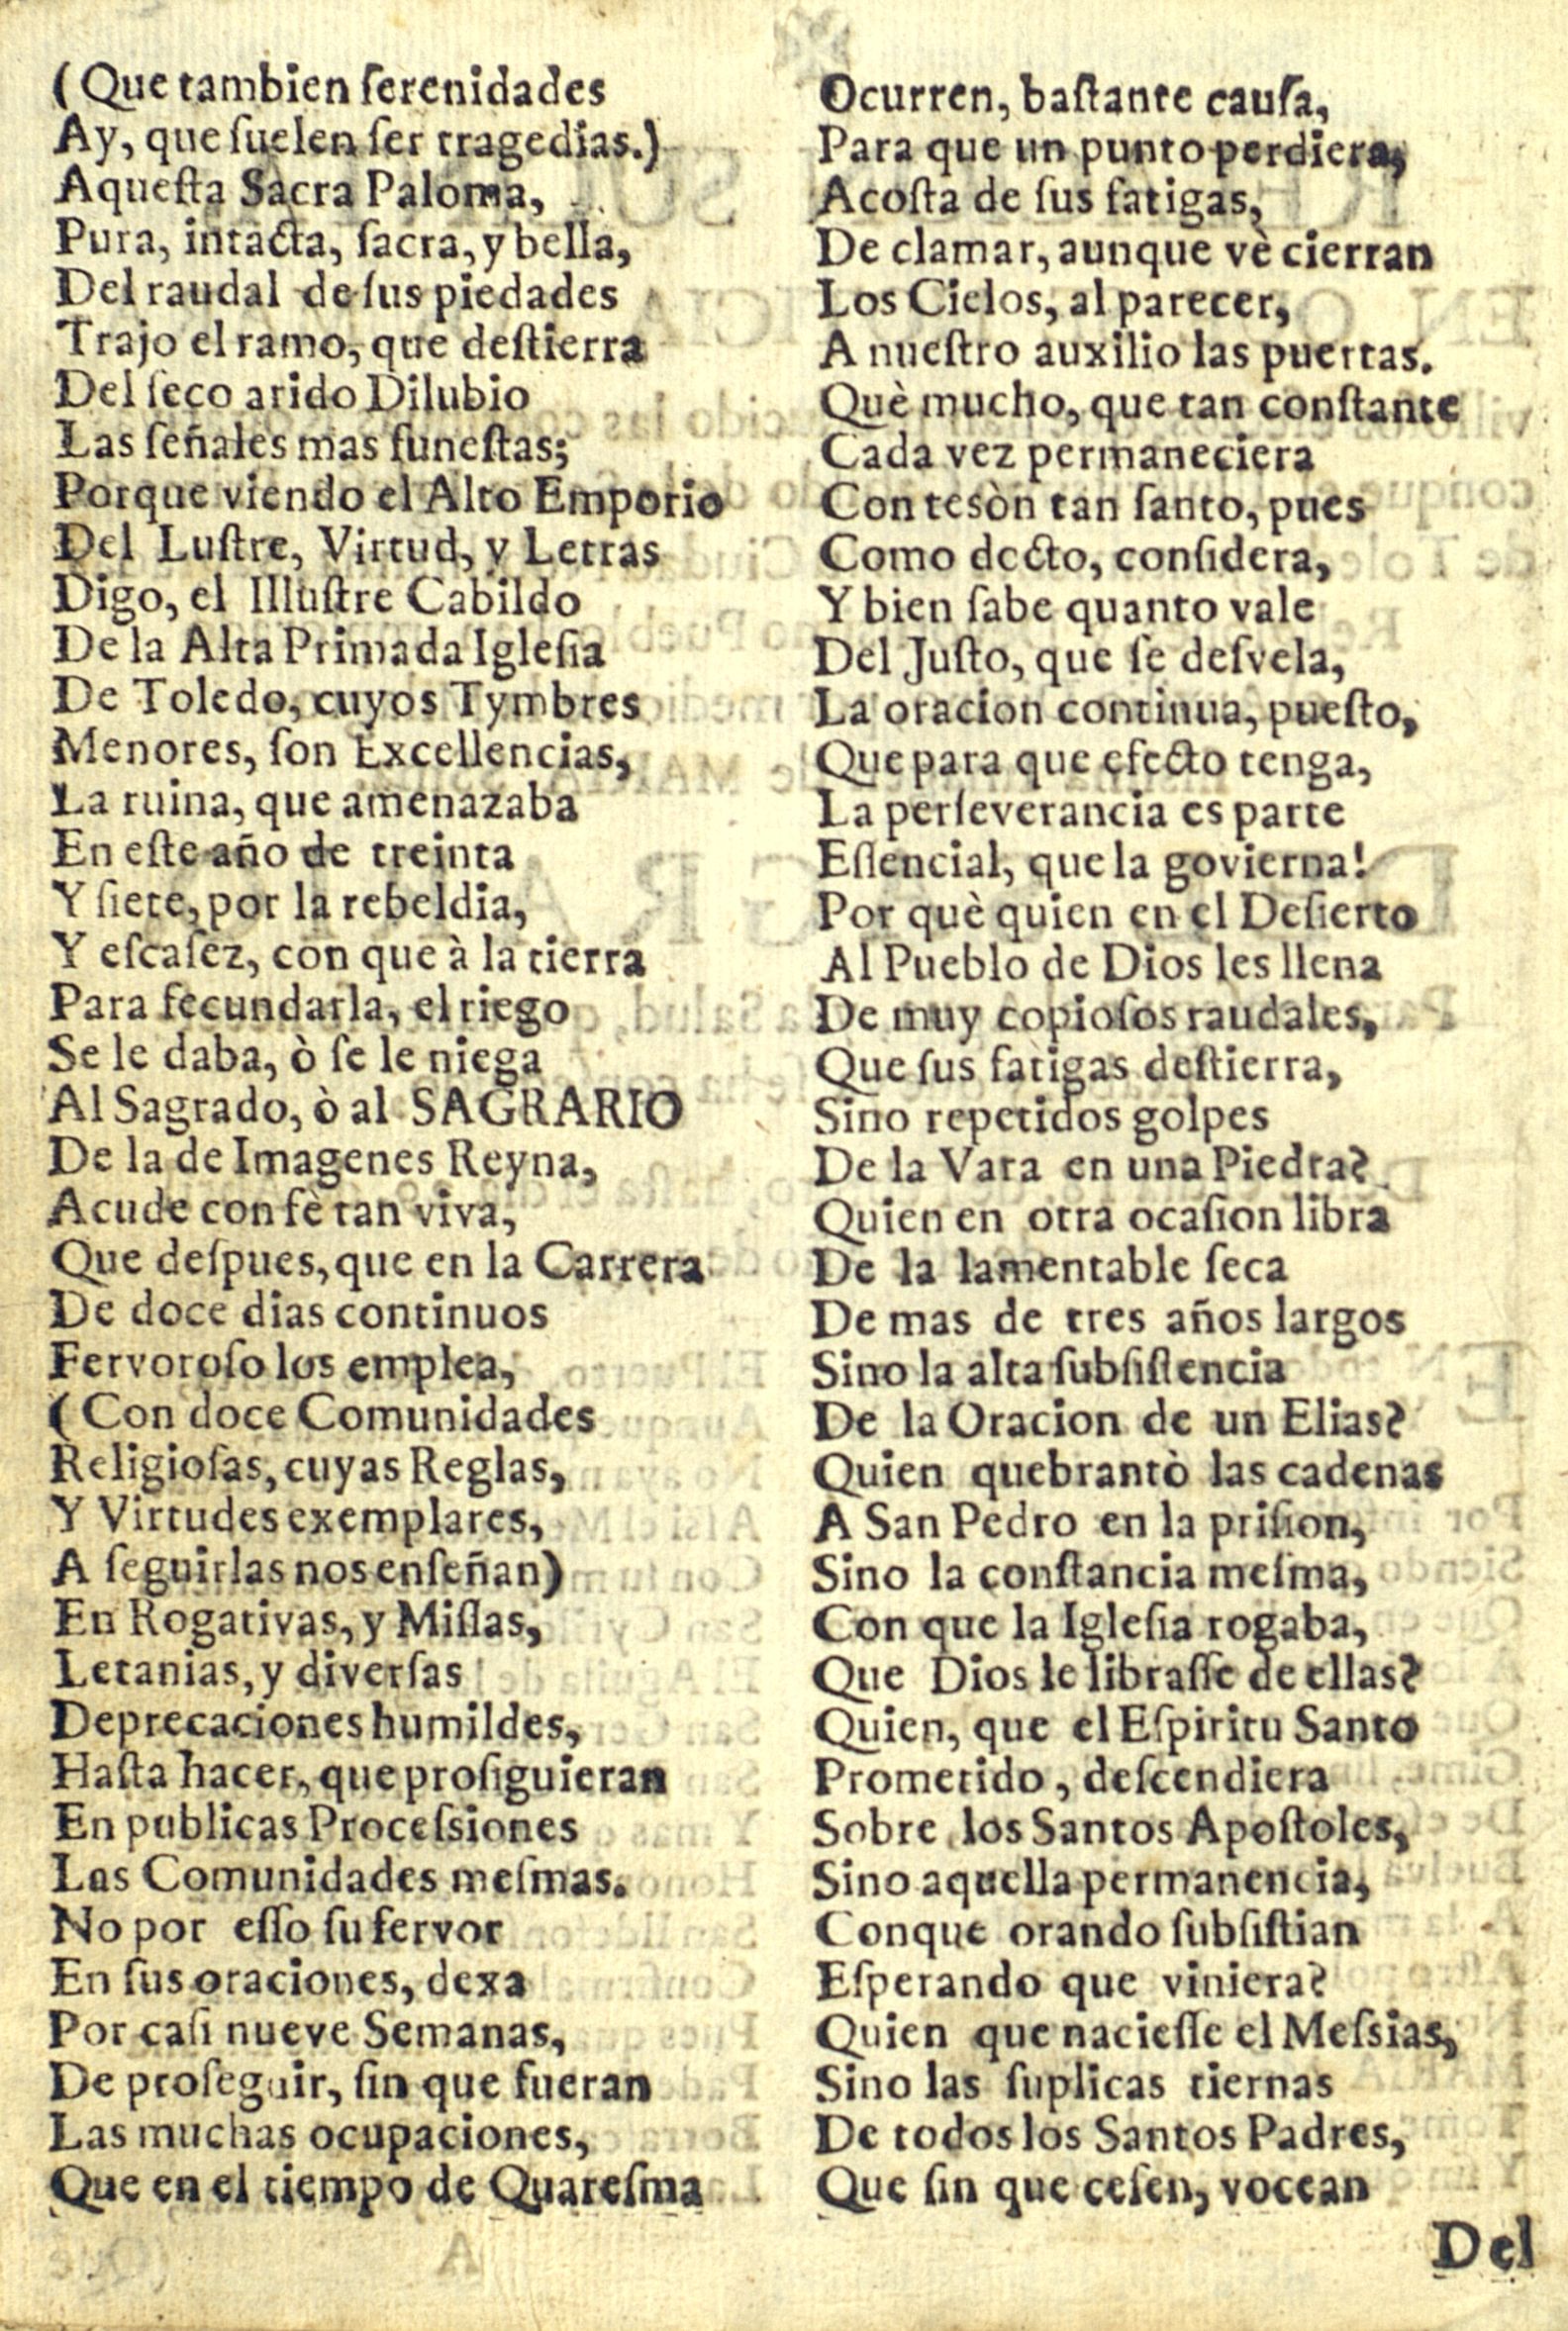 (Que tambien ſerenidades
Ay, que ſuelen ſer tragedias.)
Aqueſta Sacra Paloma,
Pura, intacta, ſacra, y bella,
Del raudal de ſus piedades
Trajo el ramo, que deſtierra
Del ſeco arido Dilubio
Las ſeñales mas funeſtas;
Porque viendo el Alto Emporio
Del Luſtre, Virtud, y Letras
Digo, el Illuſtre Cabildo
De la Alta Primada Igleſia
De Toledo, cuyos Tymbres
Menores, ſon Excellencias,
La ruina, que amenazaba
En eſte año de treinta
Y ſiete, por la rebeldia,
Y eſcaſez, con que à la tierra
Para fecundarla, el riego
Se le daba, ò ſe le niega
Al Sagrado, ò al SAGRARIO
De la de Imagenes Reyna,
Acude con fè tan viva,
Que deſpues, que en la Carrera
De doce dias continuos
Fervoroſo los emplea,
(Con doce Comunidades
Religioſas, cuyas Reglas,
Y Virtudes exemplares,
A ſeguirlas nos enſeñan)
En Rogativas, y Miſſas,
Letanias, y diverſas
Deprecaciones humildes,
Haſta hacer, que proſiguieran
En publicas Proceſsiones
Las Comunidades meſmas.
No por eſſo ſu fervor
En ſus oraciones, dexa
Por caſi nueve Semanas,
De proſeguir, ſin que fueran
Las muchas ocupaciones,
Que en el tiempo de Quareſma
Ocurren, baſtante cauſa,
Para que un punto perdiera,
Acoſta de ſus fatigas,
De clamar, aunque vè cierran
Los Cielos, al parecer,
A nueſtro auxilio las puertas.
Què mucho, que tan conſtante
Cada vez permaneciera
Con tesòn tan ſanto, pues
Como decto, conſidera,
Y bien ſabe quanto vale
Del Juſto, que ſe deſvela,
La oracion continua, pueſto,
Que para que efecto tenga,
La perſeverancia es parte
Eſſencial, que la govierna!
Por què quien en el Deſierto
Al Pueblo de Dios les llena
De muy copioſos raudales,
Que ſus fatigas deſtierra,
Sino repetidos golpes
De la Vara en una Piedra?
Quien en otra ocaſion libra
De la lamentable ſeca
De mas de tres años largos
Sino la alta ſubſiſtencia
De la Oracion de un Elias?
Quien quebrantò las cadenas
A San Pedro en la priſion,
Sino la conſtancia meſma,
Con que la Igleſia rogaba,
Que Dios le libraſſe de ellas?
Quien, que el Eſpiritu Santo
Prometido, deſcendiera
Sobre los Santos Apoſtoles,
Sino aquella permanencia,
Conque orando ſubſiſtian
Eſperando que viniera?
Quien que nacieſſe el Meſsias,
Sino las ſuplicas tiernas
De todos los Santos Padres,
Que ſin que ceſen, vocean
Del